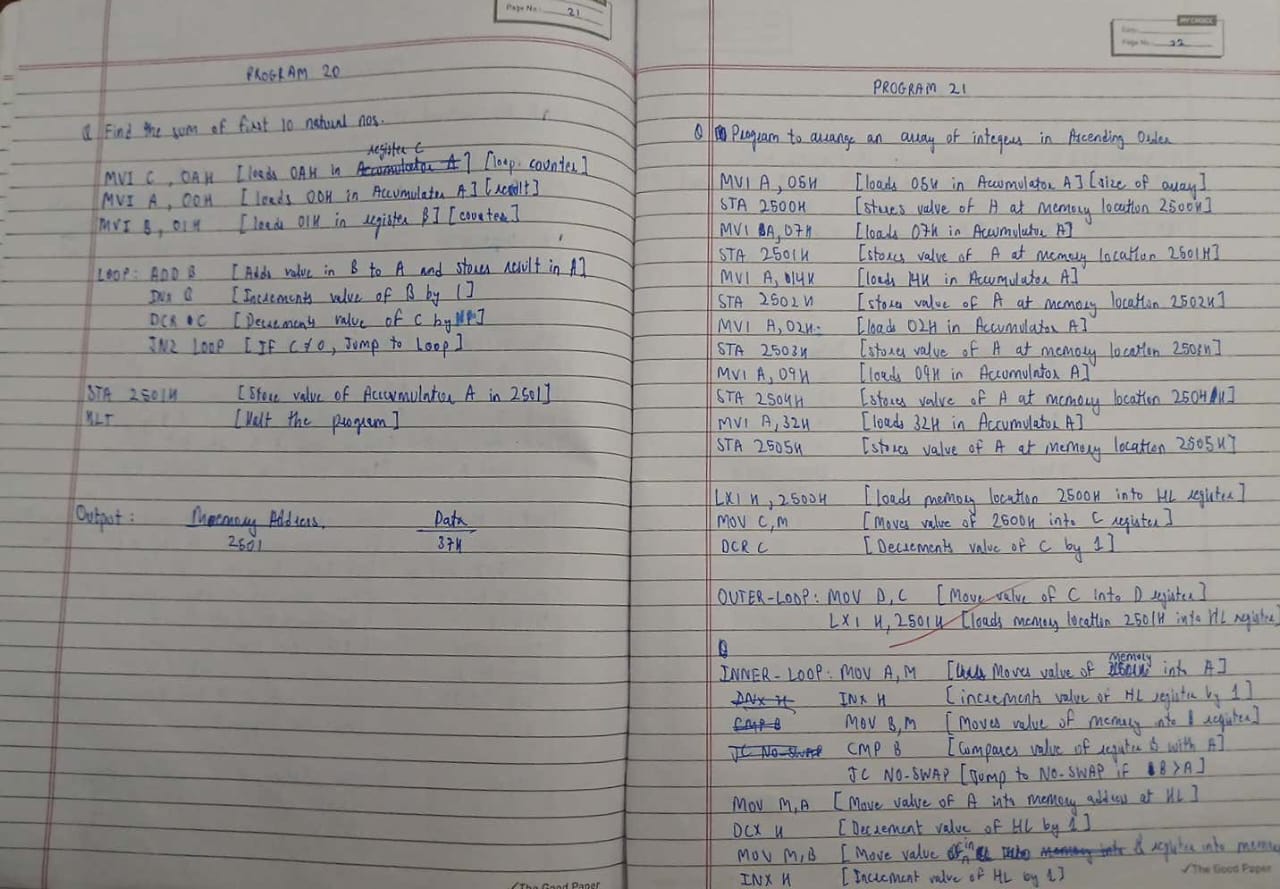 Page No.: 21
PROGRAM 20
Q Find the sum of first 10 natural nos.
register C
MVI C, 0AH [loads 0AH in Accumulator A] [loop counter]
MVI A, 00H [loads 00H in Accumulator A] [result]
MVI B, 01H [loads 01H in register B] [counter]
LOOP: ADD B [Adds value in B to A and stores result in A]
INX B [Increments value of B by 1]
DCR C [Decrements value of C by]
JNZ LOOP [IF C≠0, Jump to Loop]
STA 2501H [Store value of Accumulator A in 2501]
HLT [Halt the program]
Output: Memory Address Data
2501 37H
MY CHOICE
Date:
Page No. 22
PROGRAM 21
Q Program to arrange an array of integers in Ascending Order
MVI A, 05H [loads 05H in Accumulator A] [size of array]
STA 2500H [stores value of A at memory location 2500H]
MVI A, 07H [loads 07H in Accumulator A]
STA 2501H [stores value of A at memory location 2501H]
MVI A, 14H [loads 14H in Accumulator A]
STA 2502H [stores value of A at memory location 2502H]
MVI A, 02H [loads 02H in Accumulator A]
STA 2503H [stores value of A at memory location 2503H]
MVI A, 09H [loads 09H in Accumulator A]
STA 2504H [stores value of A at memory location 2504H]
MVI A, 32H [loads 32H in Accumulator A]
STA 2505H [stores value of A at memory location 2505H]
LXI H, 2500H [loads memory location 2500H into HL register]
MOV C, M [Moves value of 2500H into C register]
DCR C [Decrements value of C by 1]
OUTER-LOOP: MOV D, C [Move value of C into D register]
LXI H, 2501H [loads memory location 2501H into HL register]
memory
INNER-LOOP: MOV A, M [Moves value of into A]
INX H INX H [increments value of HL register by 1]
CMP B MOV B, M [Moves value of memory into B register]
JC NO-SWAP CMP B [Compares value of register B with A]
JC NO-SWAP [Jump to NO-SWAP if B > A]
MOV M, A [Move value of A into memory address at HL]
DCX H [Decrement value of HL by 1]
MOV M, B [Move value in memory into B register into
INX H [Increment value of HL by 1]
The Good Paper
The Good Paper